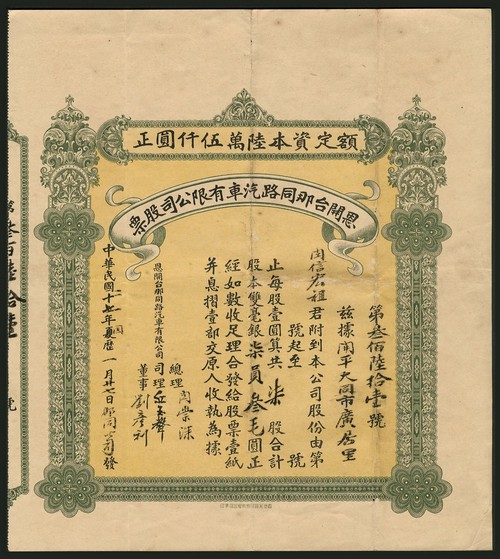 額定資本陸萬伍仟圓正
恩開台那同路汽車有限公司股票
第叁佰陸拾壹號
茲據開平大同市廣居里
信宏祖君附到本公司股份由第
號起至 號
止每股壹圓算共柒股合計
股本雙毫銀柒員叁毛圓正
經如數收足理合發給股票壹紙
并息摺壹部交原人收執為據
總理
恩開台那同路汽車有限公司司理
董事劉彥利
中華民國十七年夏曆一月廿七日那同公司發
叁佰陸拾壹 號